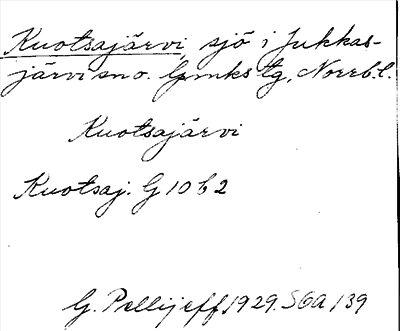 Kuotsajärvi, sjö i Jukkas-
järvi sn o. lpmkstg, Norrb. l.
Kuotsajärvi
Kuotsaj. G 10 b 2
G. Pellijeff 1929. SOA 139